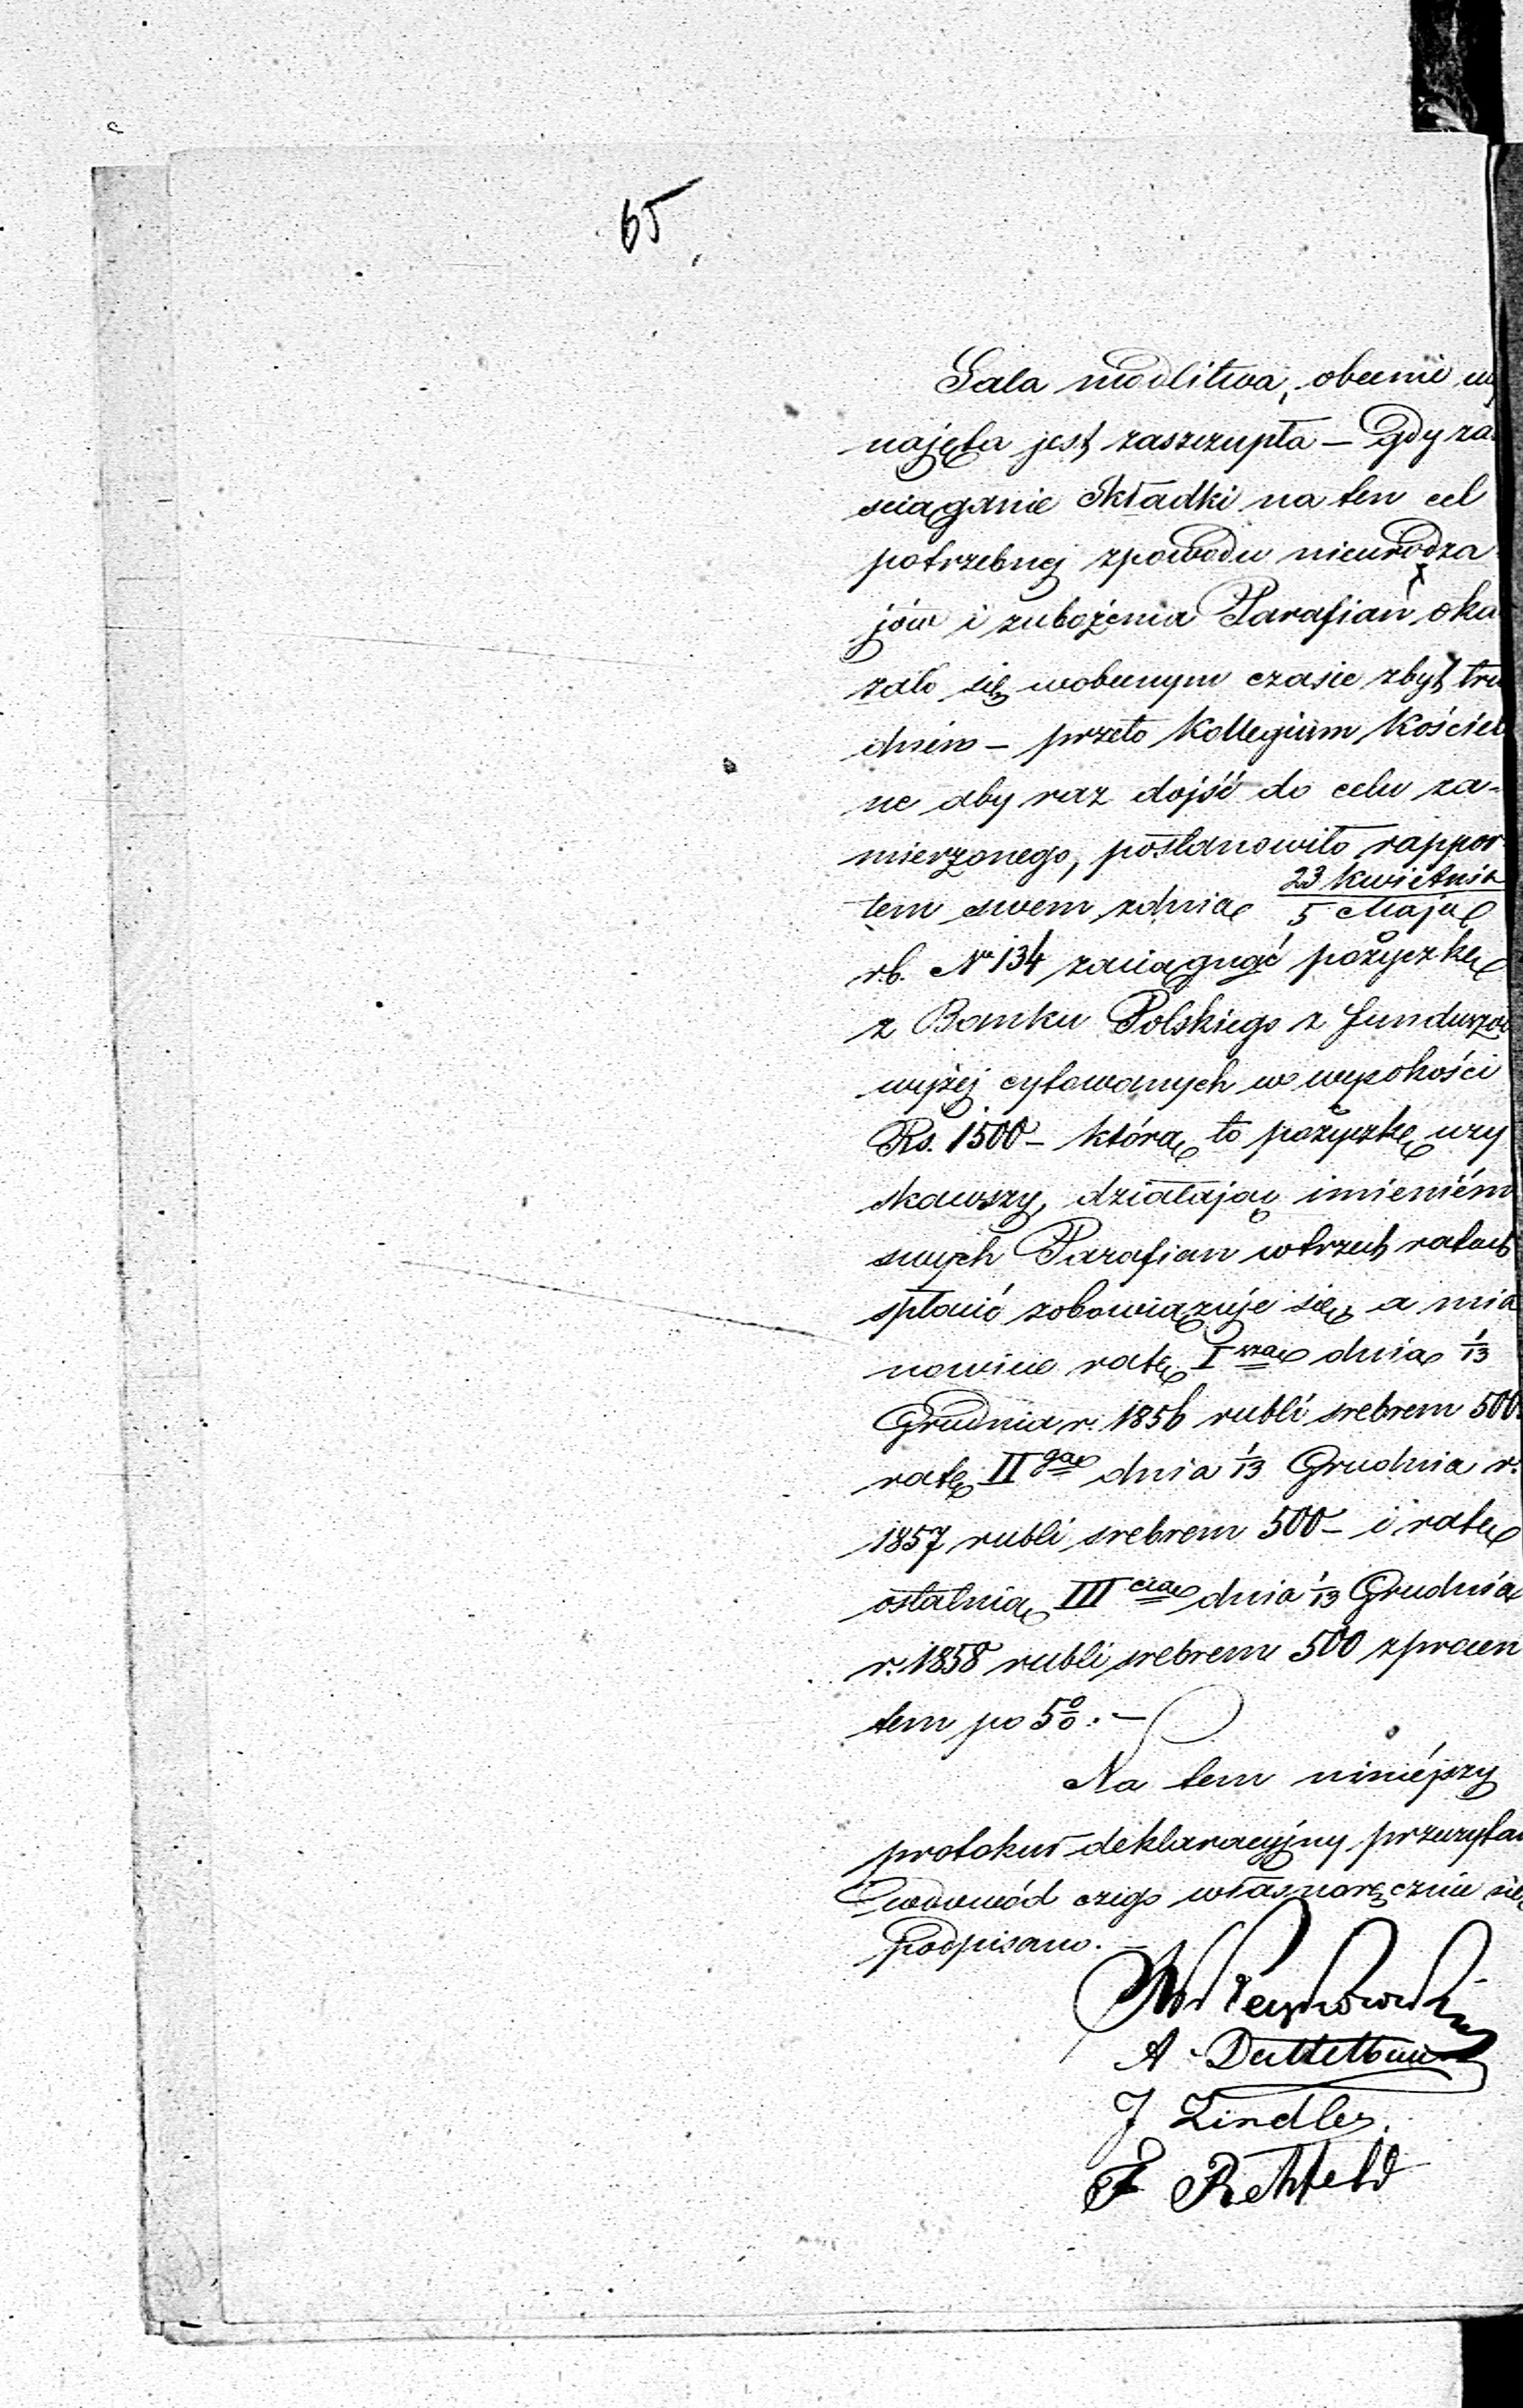 65
Sala modlitwa, obecnie wy
najęta jest zaszczupła – Gdy zaś
sciąganie składki na ten cel
potrzebnej zpowodu nieurodza-
jów i zubożenia Parafian oka
zało się wobecnym czasie zbyt tru
dném – przeto Kollegium Kościel
ne aby raz dojść do celu za-
mierzonego, postanowiło rappor-
tem swem zdnia 23 Kwietnia / 5 Maja
r.b. No 134 zaciągnąć pożyczkę
z Banku Polskiego z funduszów
wyżej cytowanych w wysokości
Rs. 1500 – którą to pożyczkę uzy
skawszy, działając imieniém
swych Parafian wtrzech ratach
spłacić zobowiązuje się, a mia
nowicie ratę I szą dnia 1/13
Grudnia r. 1856 rubli srebrem 500.
ratę II gą dnia 1/13 Grudnia r.
1857 rubli srebrem 500 – i ratę
ostatnią III cią dnia 1/13 Grudnia
r. 1858 rubli srebrem 500 zprocen
tem po 5%. –
Na tem niniéjszy
protokuł deklaracyjny przeczytano
wdowód czego własnoręcznie się
podpisano. –
J Zindler.
F Rehfeld